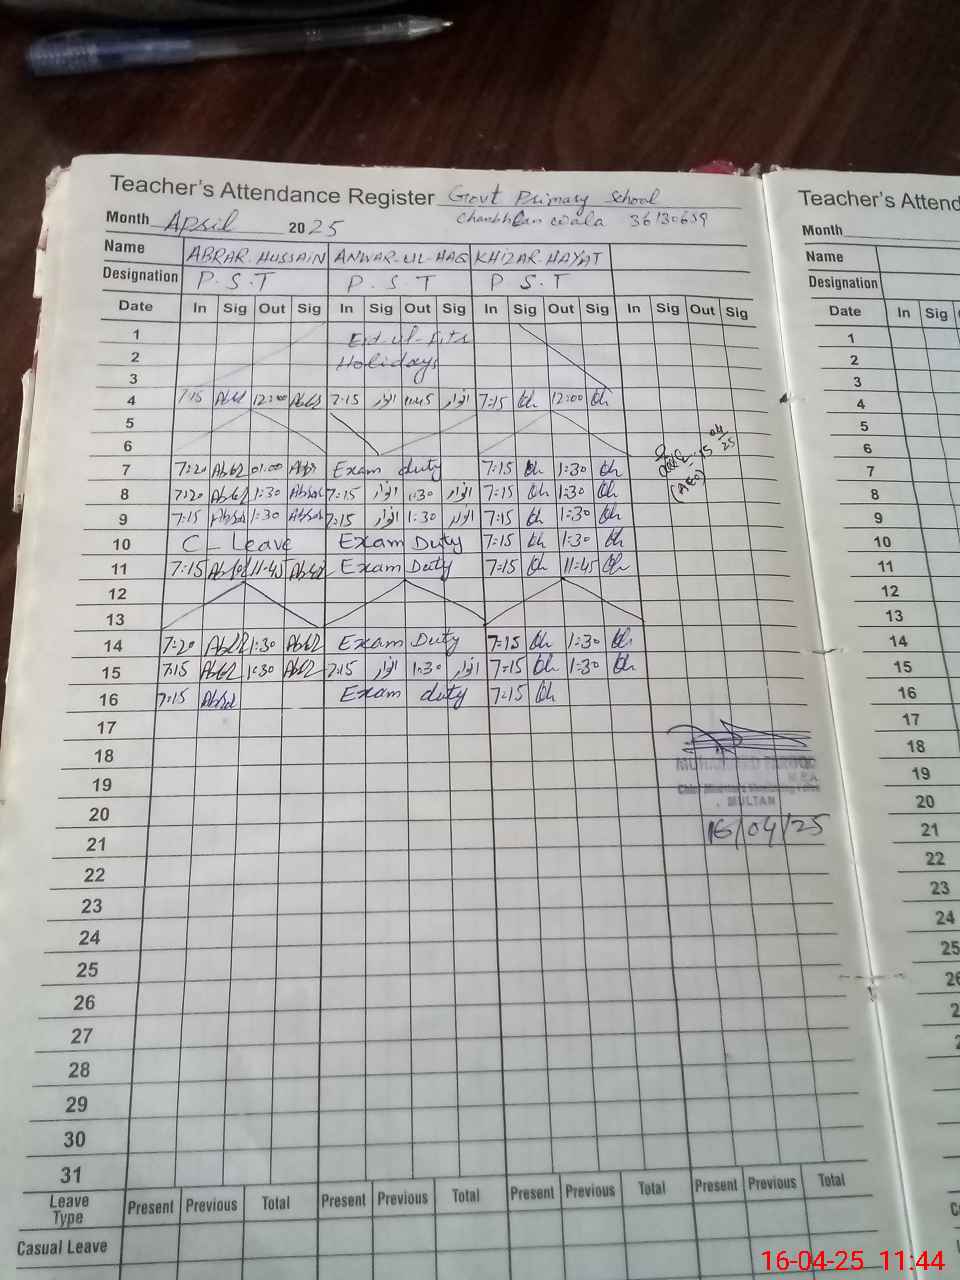 Teacher's Attendance Register Govt Primary School
Chanbhan wala 36130659
Month April 2025
Name ABRAR HUSSAIN ANWAR-UL-HAQ KHIZAR HAYAT
Designation P.S.T P.S.T P.S.T
Date In Sig Out Sig In Sig Out Sig In Sig Out Sig In Sig Out Sig
1 Eid-ul-Fitr
2 Holidays
3
4 7:15 12:00 7:15 انوار 11:45 انوار 7:15 12:00
5
6
7 7:20 01:00 Exam duty 7:15 1:30
8 7:20 1:30 7:15 انوار 1:30 انوار 7:15 1:30
9 7:15 1:30 7:15 انوار 1:30 انوار 7:15 1:30
10 C-Leave Exam Duty 7:15 1:30
11 7:15 11:45 Exam Duty 7:15 11:45
12
13
14 7:20 1:30 Exam Duty 7:15 1:30
15 7:15 1:30 7:15 انوار 1:30 انوار 7:15 1:30
16 7:15 Exam duty 7:15
17
18
19
20
21
22
23
24
25
26
27
28
29
30
31
15 04 25
(AEO)
MUHAMMAD FAROOQ
M.P.A
MULTAN
16/04/25
Leave Type Present Previous Total Present Previous Total Present Previous Total Present Previous Total
Casual Leave
Teacher's Attend
Month
Name
Designation
Date In Sig
1
2
3
4
5
6
7
8
9
10
11
12
13
14
15
16
17
18
19
20
21
22
23
24
25
26
16-04-25 11:44